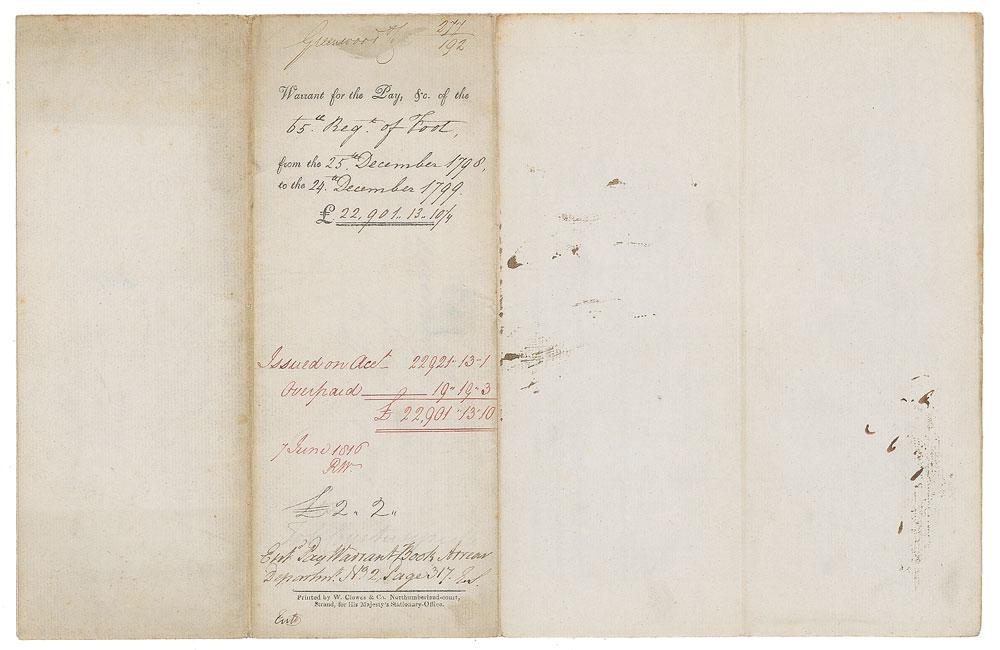 Greenwood
277
192
Warrant for the Pay, &c. of the
65th Regt. of Foot,
from the 25th December 1798,
to the 24th December 1799.
£ 22,901.. 13.. 10 1/4
Issued on Acct 22921-13-1
Overpaid 19-19-3
£ 22,901-13-10
7 June 1816
RW.
£2.. 2..
Entd. Pay Warrant Book Arrear
Departmt. No 2, Page 317.
Printed by W. Clowes & Co. Northumberland-court,
Strand, for His Majesty's Stationary-Office.
Entd